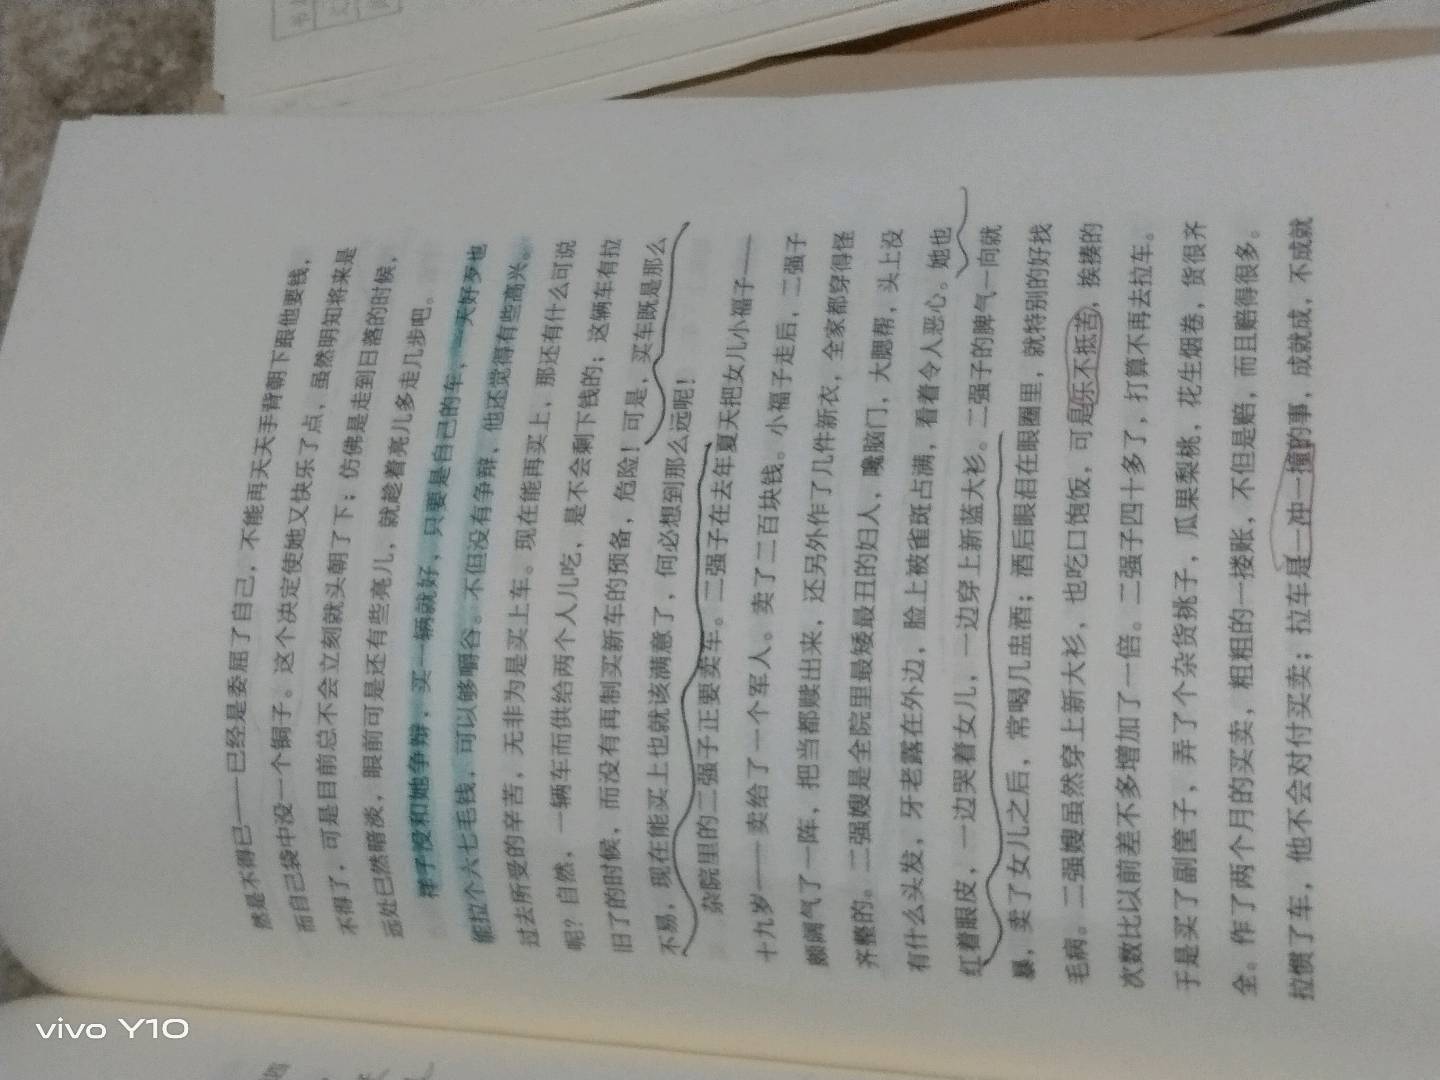 然是不得已——已经是委屈了自己，不能再天天手背朝下跟他要钱，
而自己袋中没一个铜子。这个决定使她又快乐了点，虽然明知将来是
不得了，可是目前总不会立刻就头朝了下；仿佛是走到日落的时候，
远处已然暗淡，眼前可是还有些亮儿，就趁着亮儿多走几步吧。
祥子没和她争辩，买一辆就好，只要是自己的车，一天好歹也
能拉个六七毛钱，可以够嚼谷。不但没有争辩，他还觉得有些高兴。
过去所受的辛苦，无非为是买上车。现在能再买上，那还有什么可说
呢？自然，一辆车而供给两个人儿吃，是不会剩下钱的；这辆车有拉
旧了的时候，而没有再制买新车的预备，危险！可是，买车既是那么
不易，现在能买上也就该满意了，何必想到那么远呢！
杂院里的二强子正要卖车。二强子在去年夏天把女儿小福子——
十九岁——卖给了一个军人。卖了二百块钱。小福子走后，二强子
颇阔气了一阵，把当都赎出来，还另外作了几件新衣，全家都穿得怪
齐整的。二强嫂是全院里最矮最丑的妇人，嚵脑门，大腮帮，头上没
有什么头发，牙老露在外边，脸上被雀斑占满，看着令人恶心。她也
红着眼皮，一边哭着女儿，一边穿上新蓝大衫。二强子的脾气一向就
暴，卖了女儿之后，常喝几盅酒；酒后眼泪在眼圈里，就特别的好找
毛病。二强嫂虽然穿上新大衫，也吃口饱饭，可是乐不抵苦，挨揍的
次数比以前差不多增加了一倍。二强子四十多了，打算不再去拉车。
于是买了副筐子，弄了个杂货挑子，瓜果梨桃，花生烟卷，货很齐
全。作了两个月的买卖，粗粗的一搂账，不但是赔，而且赔得很多。
拉惯了车，他不会对付买卖；拉车是一冲一撞的事，成就成，不成就
vivo Y10